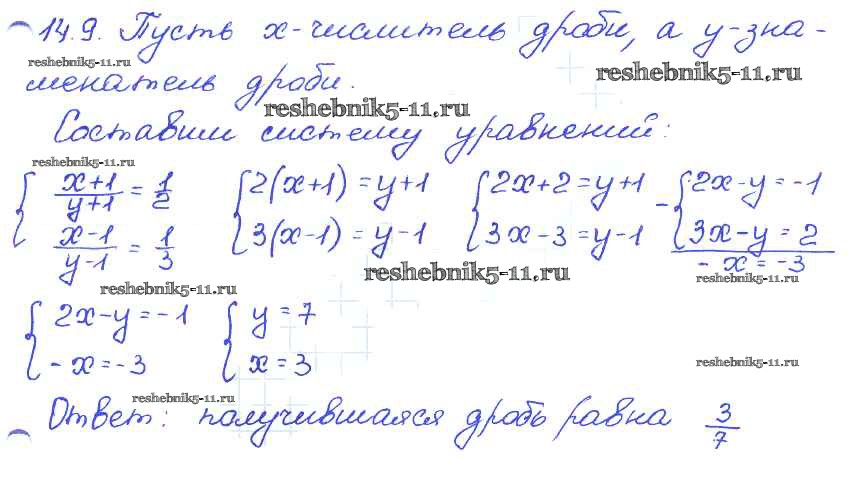 14.9. Пусть x-числитель дроби, а y-зна-
reshebnik5-11.ru
reshebnik5-11.ru
менатель дроби.
reshebnik5-11.ru
Составим систему уравнений:
reshebnik5-11.ru
{ (x+1)/(y+1) = 1/2 { 2(x+1) = y+1 { 2x+2 = y+1 - { 2x-y = -1
{ (x-1)/(y-1) = 1/3 { 3(x-1) = y-1 { 3x-3 = y-1 { 3x-y = 2
-x = -3
reshebnik5-11.ru
reshebnik5-11.ru
reshebnik5-11.ru
{ 2x-y = -1 { y = 7
{ -x = -3 { x = 3
reshebnik5-11.ru
reshebnik5-11.ru
Ответ: получившаяся дробь равна 3/7